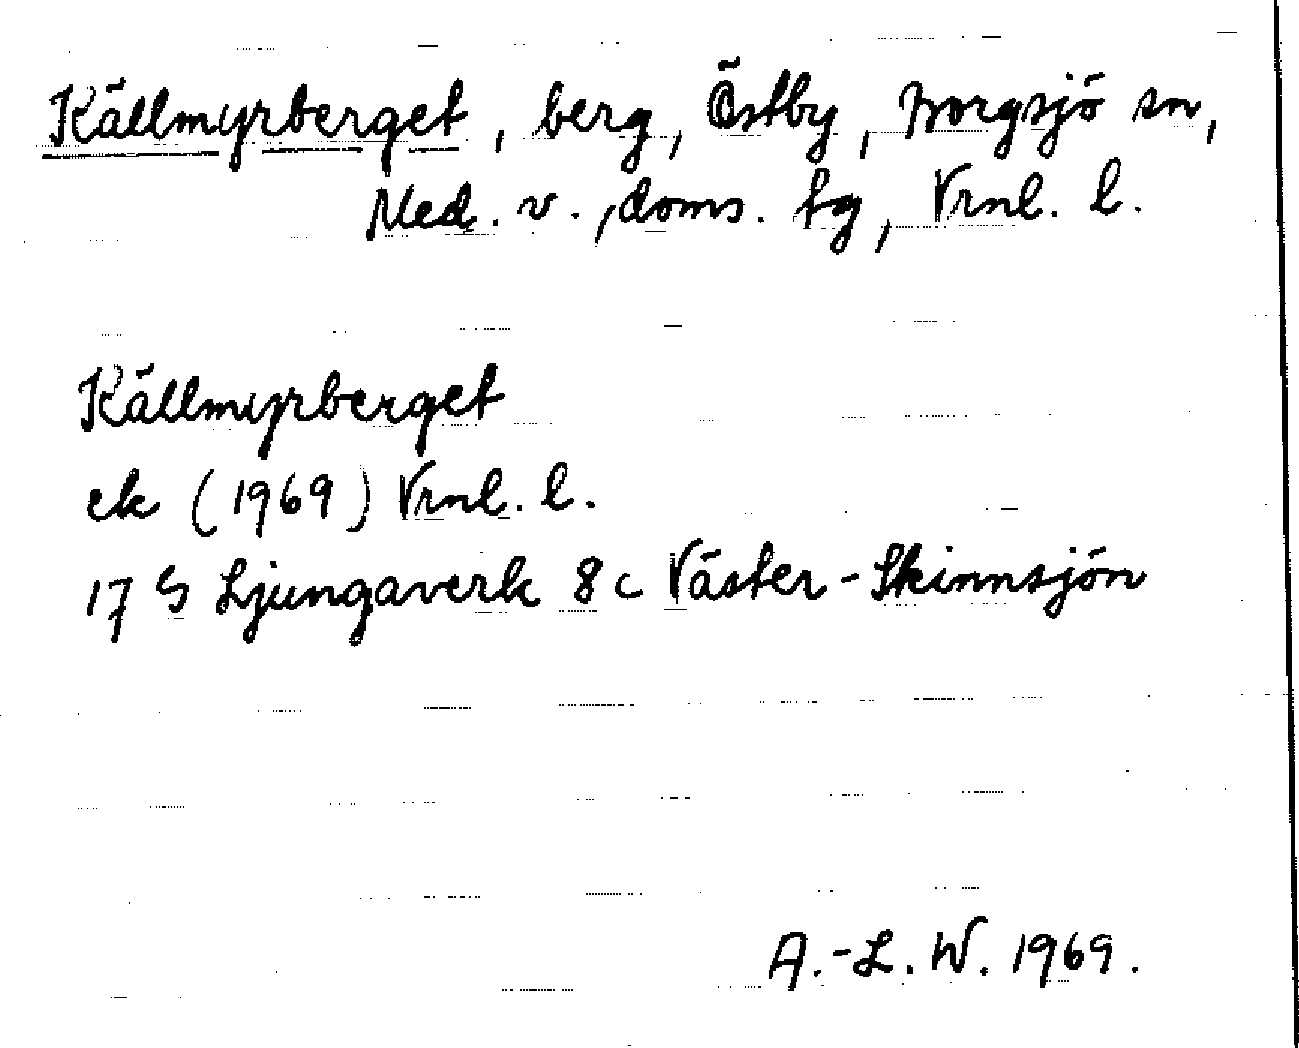 Källmyrberget, berg, Östby, Borgsjö sn,
Med. v., doms. tg, Vrnl. l.
Källmyrberget
ek (1969) Vrnl. l.
17 G Ljungaverk 8 c Väster-Skinnsjön
A.-L. W. 1969.